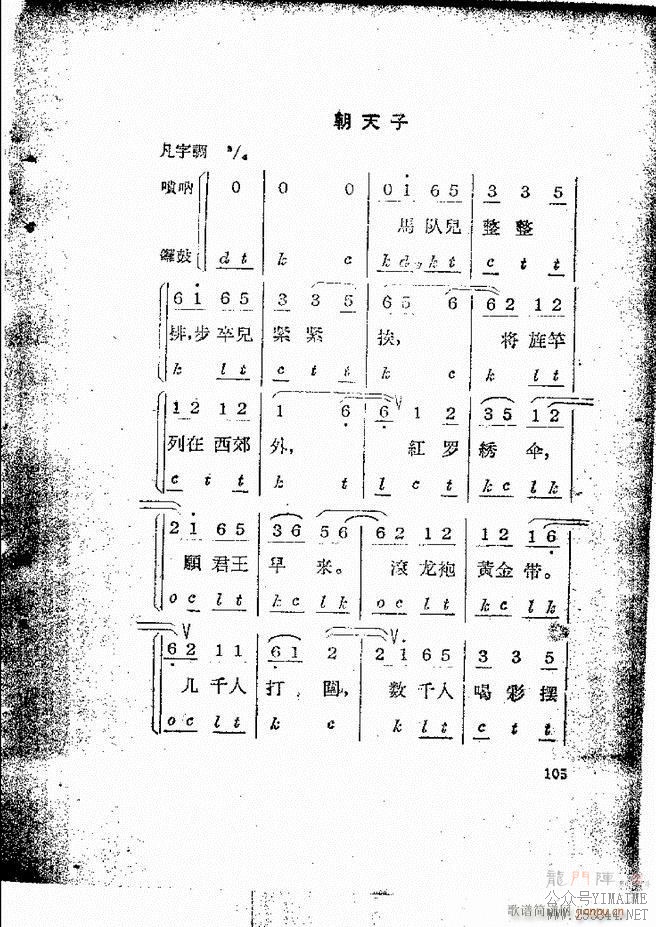 朝天子
凡字調 2/4
嗩吶 0 0 0 0 1 6 5 3 3 5
馬队兒 整整
鑼鼓 d t k c k d k t c t t
6 1 6 5 3 3 5 6 5 6 6 2 1 2
排,步卒兒 紧紧 挨, 将旌竿
k l t c t t k c k l t
1 2 1 2 1 6 6 1 2 3 5 1 2
列在西郊 外, 紅罗 綉伞,
c t t k t l c t k c l k
2 1 6 5 3 6 5 6 6 2 1 2 1 2 1 6
願君王 早来。 滾龙袍 黄金带。
o c l t k c l k o c l t k c l k
6 2 1 1 6 1 2 2 1 6 5 3 3 5
几千人 打圍, 数千人 喝彩摆
o c l t k c k l t c t t
105
龍門陣
公众号YIMAIME
歌谱简谱网